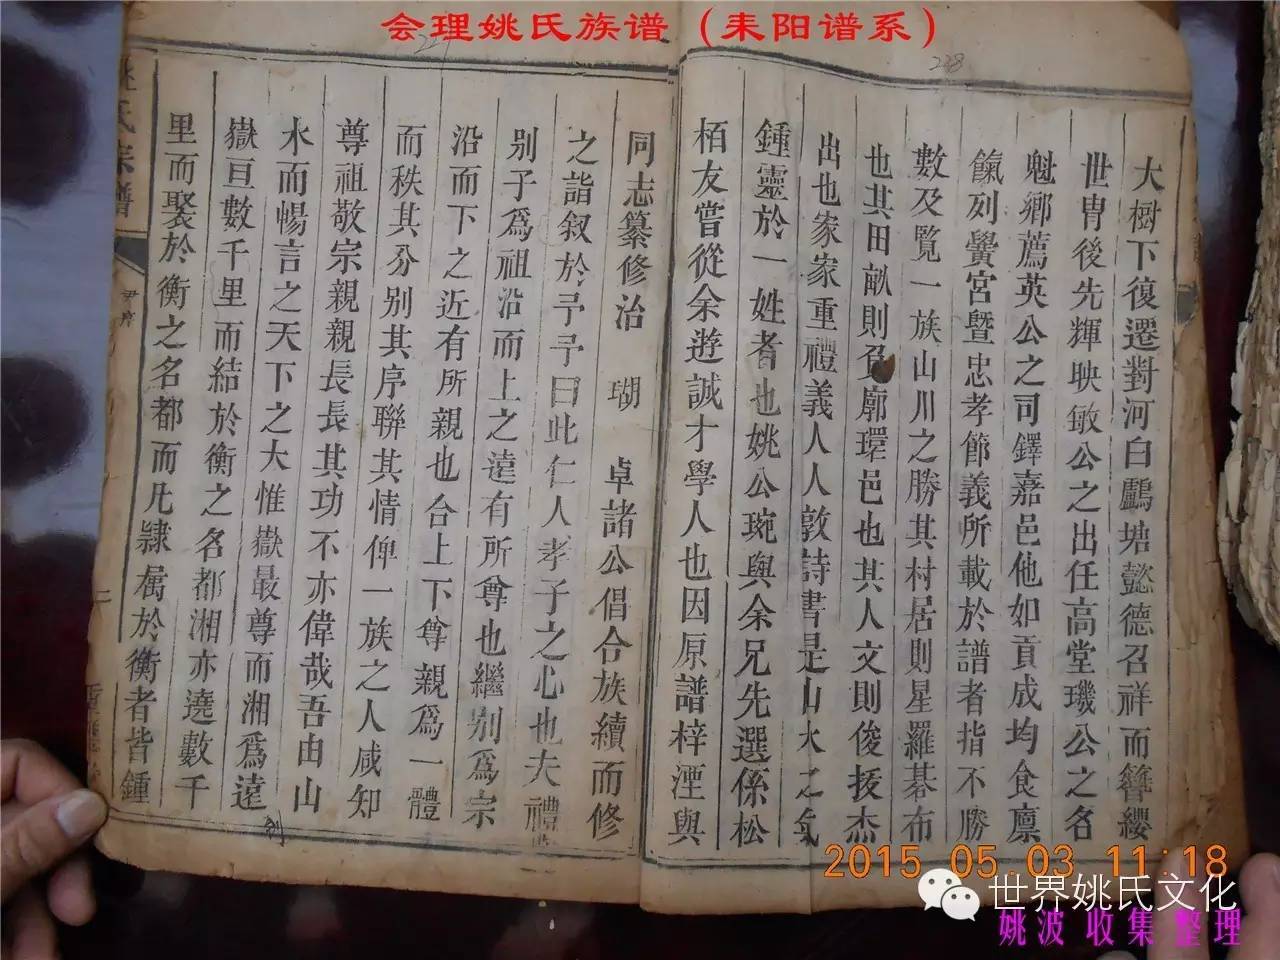 会理姚氏族谱（耒阳谱系）
238
大樹下復遷對河白鸕塘懿德召祥而簪纓
世胄後先輝映敏公之出任高堂璣公之名
魁鄉薦英公之司鐸嘉邑他如貢成均食廩
餼列黌宮暨忠孝節義所載於譜者指不勝
數及覽一族山川之勝其村居則星羅碁布
也其田畝則負廓環邑也其人文則俊拔杰
出也家家重禮義人人敦詩書是山水之氣
鍾靈於一姓者也姚公琬與余兄先選係松
栢友嘗從余遊誠才學人也因原譜梓湮與
同志纂修治 瑚 卓諸公倡合族續而修
之詣叙於予予曰此仁人孝子之心也夫禮
别子爲祖沿而上之遠有所尊也繼别爲宗
沿而下之近有所親也合上下尊親爲一體
而秩其分别其序聯其情俾一族之人咸知
尊祖敬宗親親長長其功不亦偉哉吾由山
水而暢言之天下之大惟嶽最尊而湘爲遠
嶽亘數千里而結於衡之名都湘亦遶數千
里而聚於衡之名都而凡隷属於衡者皆鍾
姚氏宗譜
尹序
二
2015.05.03 11:18
世界姚氏文化
姚波 收集 整理